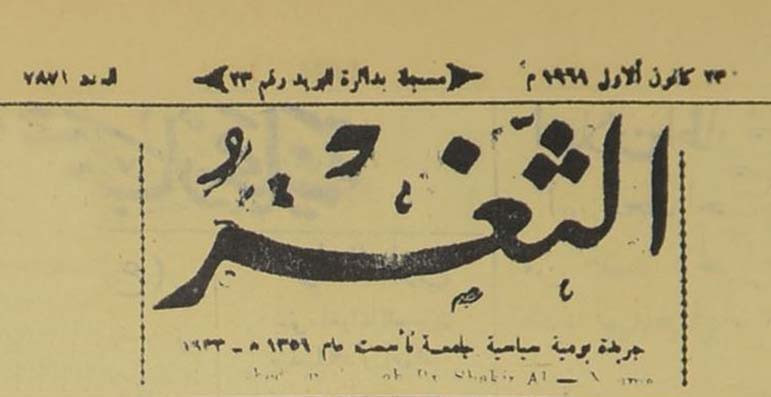 ٢٣ كانون الاول ١٩٦٩ م (مسجلة بدائرة البريد رقم ٢٣) العدد ٧٨٧١
الثغر
جريدة يومية سياسية جامعة تأسست عام ١٣٥١ ه - ١٩٣٣
Shakir Al –